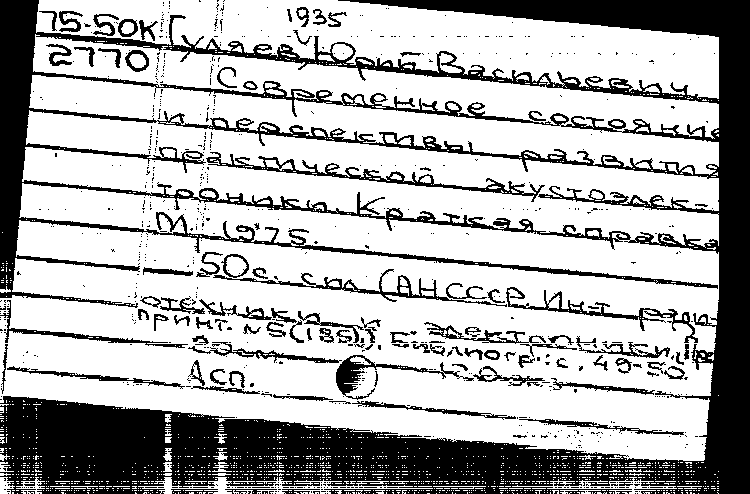 1935
75-50К Гуляев, Юрий Васильевич.
2770
Современное состояние
и перспективы развития
практической акустоэлек-
троники. Краткая справка
М. 1975.
50с. с ил (АН СССР. Ин-т ради-
отехники и электроники. Пре
принт. №5(185)). Библиогр.: с. 49-50
20см.
Асп.